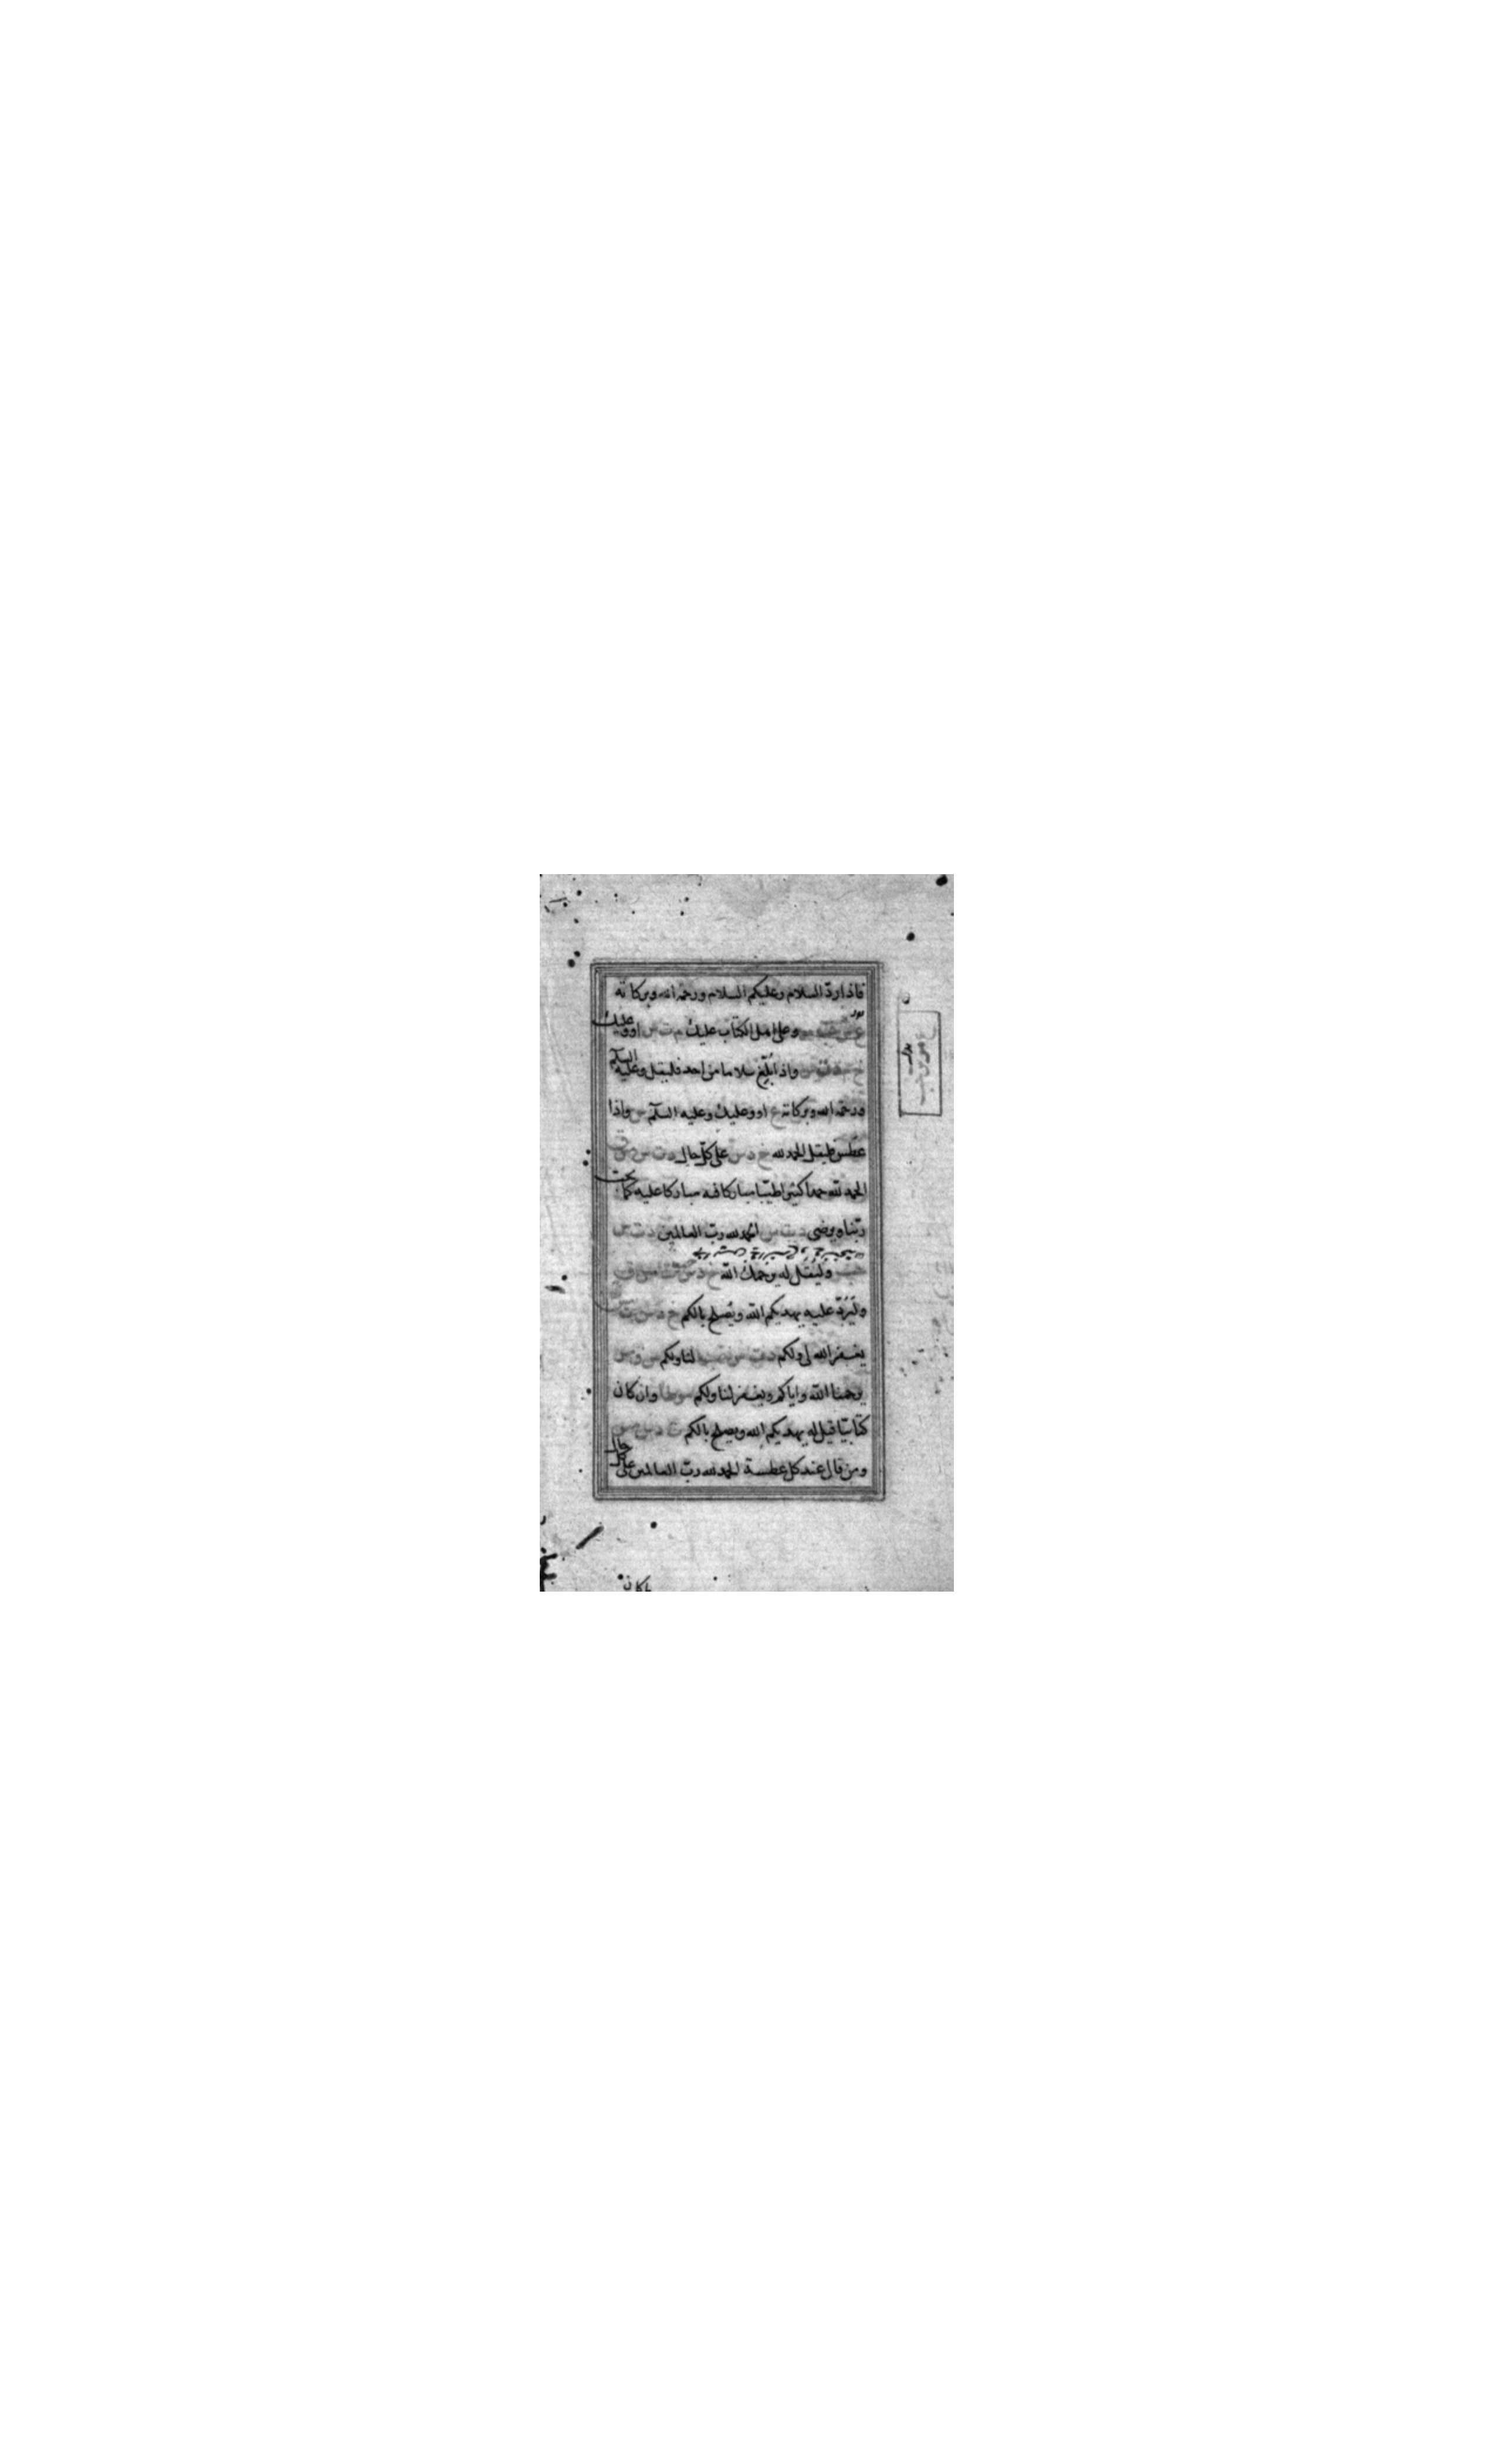 فاذا ردّ السلام وعليكم السلام ورحمة الله وبركاته
وعلى اهل الكتاب عليك م ت س او وعليك
واذا بُلّغ سلاما من احد فليقل وعليه السلم
ورحمة الله وبركاته ع او وعليك وعليه السلم س واذا
عطس فليقل الحمد لله خ د س على كلّ حال د ت س
الحمد لله حمدا كثيرا طيّبا مباركا فيه مباركا عليه كما يحبّ
ربّنا ويرضى د ت س الحمد لله ربّ العالمين د ت س
حب وليُقل له يرحمك الله خ د س
وليَرُدّ عليه يهديكم الله ويُصلح بالكم خ د س ت
يغفر الله لى ولكم د ت س لنا ولكم س
يرحمنا الله واياكم ويغفر لنا ولكم مو طا وان كان
كتابيّا قيل له يهديكم الله ويصلح بالكم ت د س
ومن قال عند كل عطسة الحمد لله ربّ العالمين على كل حال
ما كان